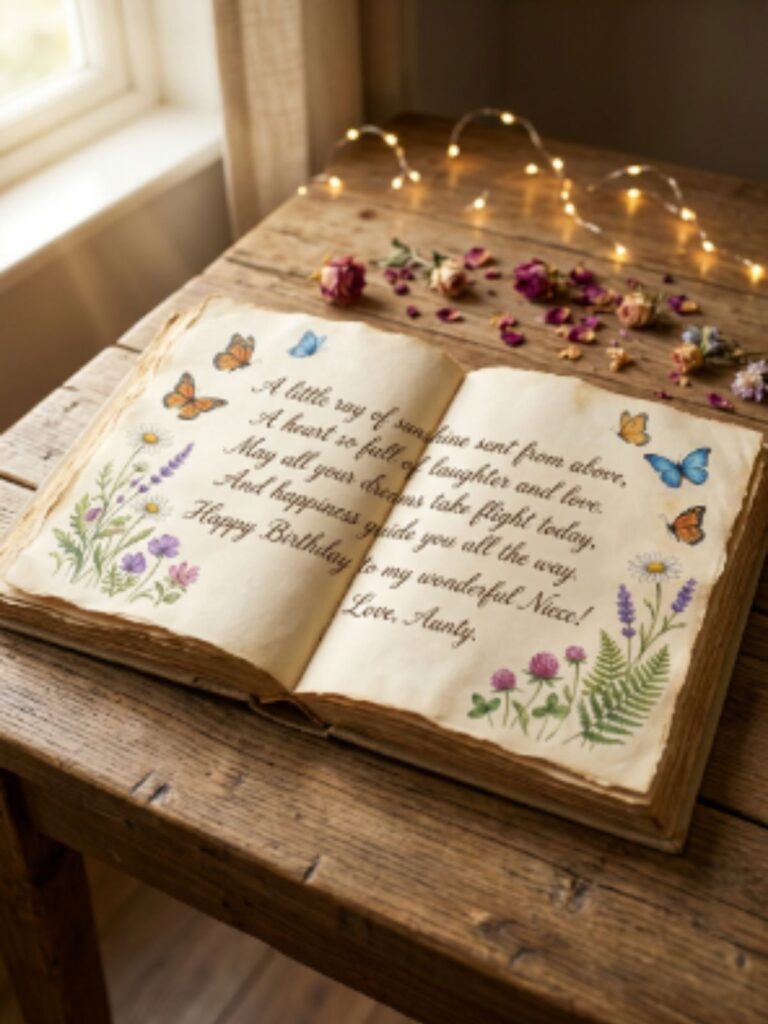 A little ray of sunshine sent from above,
A heart so full of laughter and love.
May all your dreams take flight today,
And happiness guide you all the way.
Happy Birthday to my wonderful Niece!
Love, Aunty.